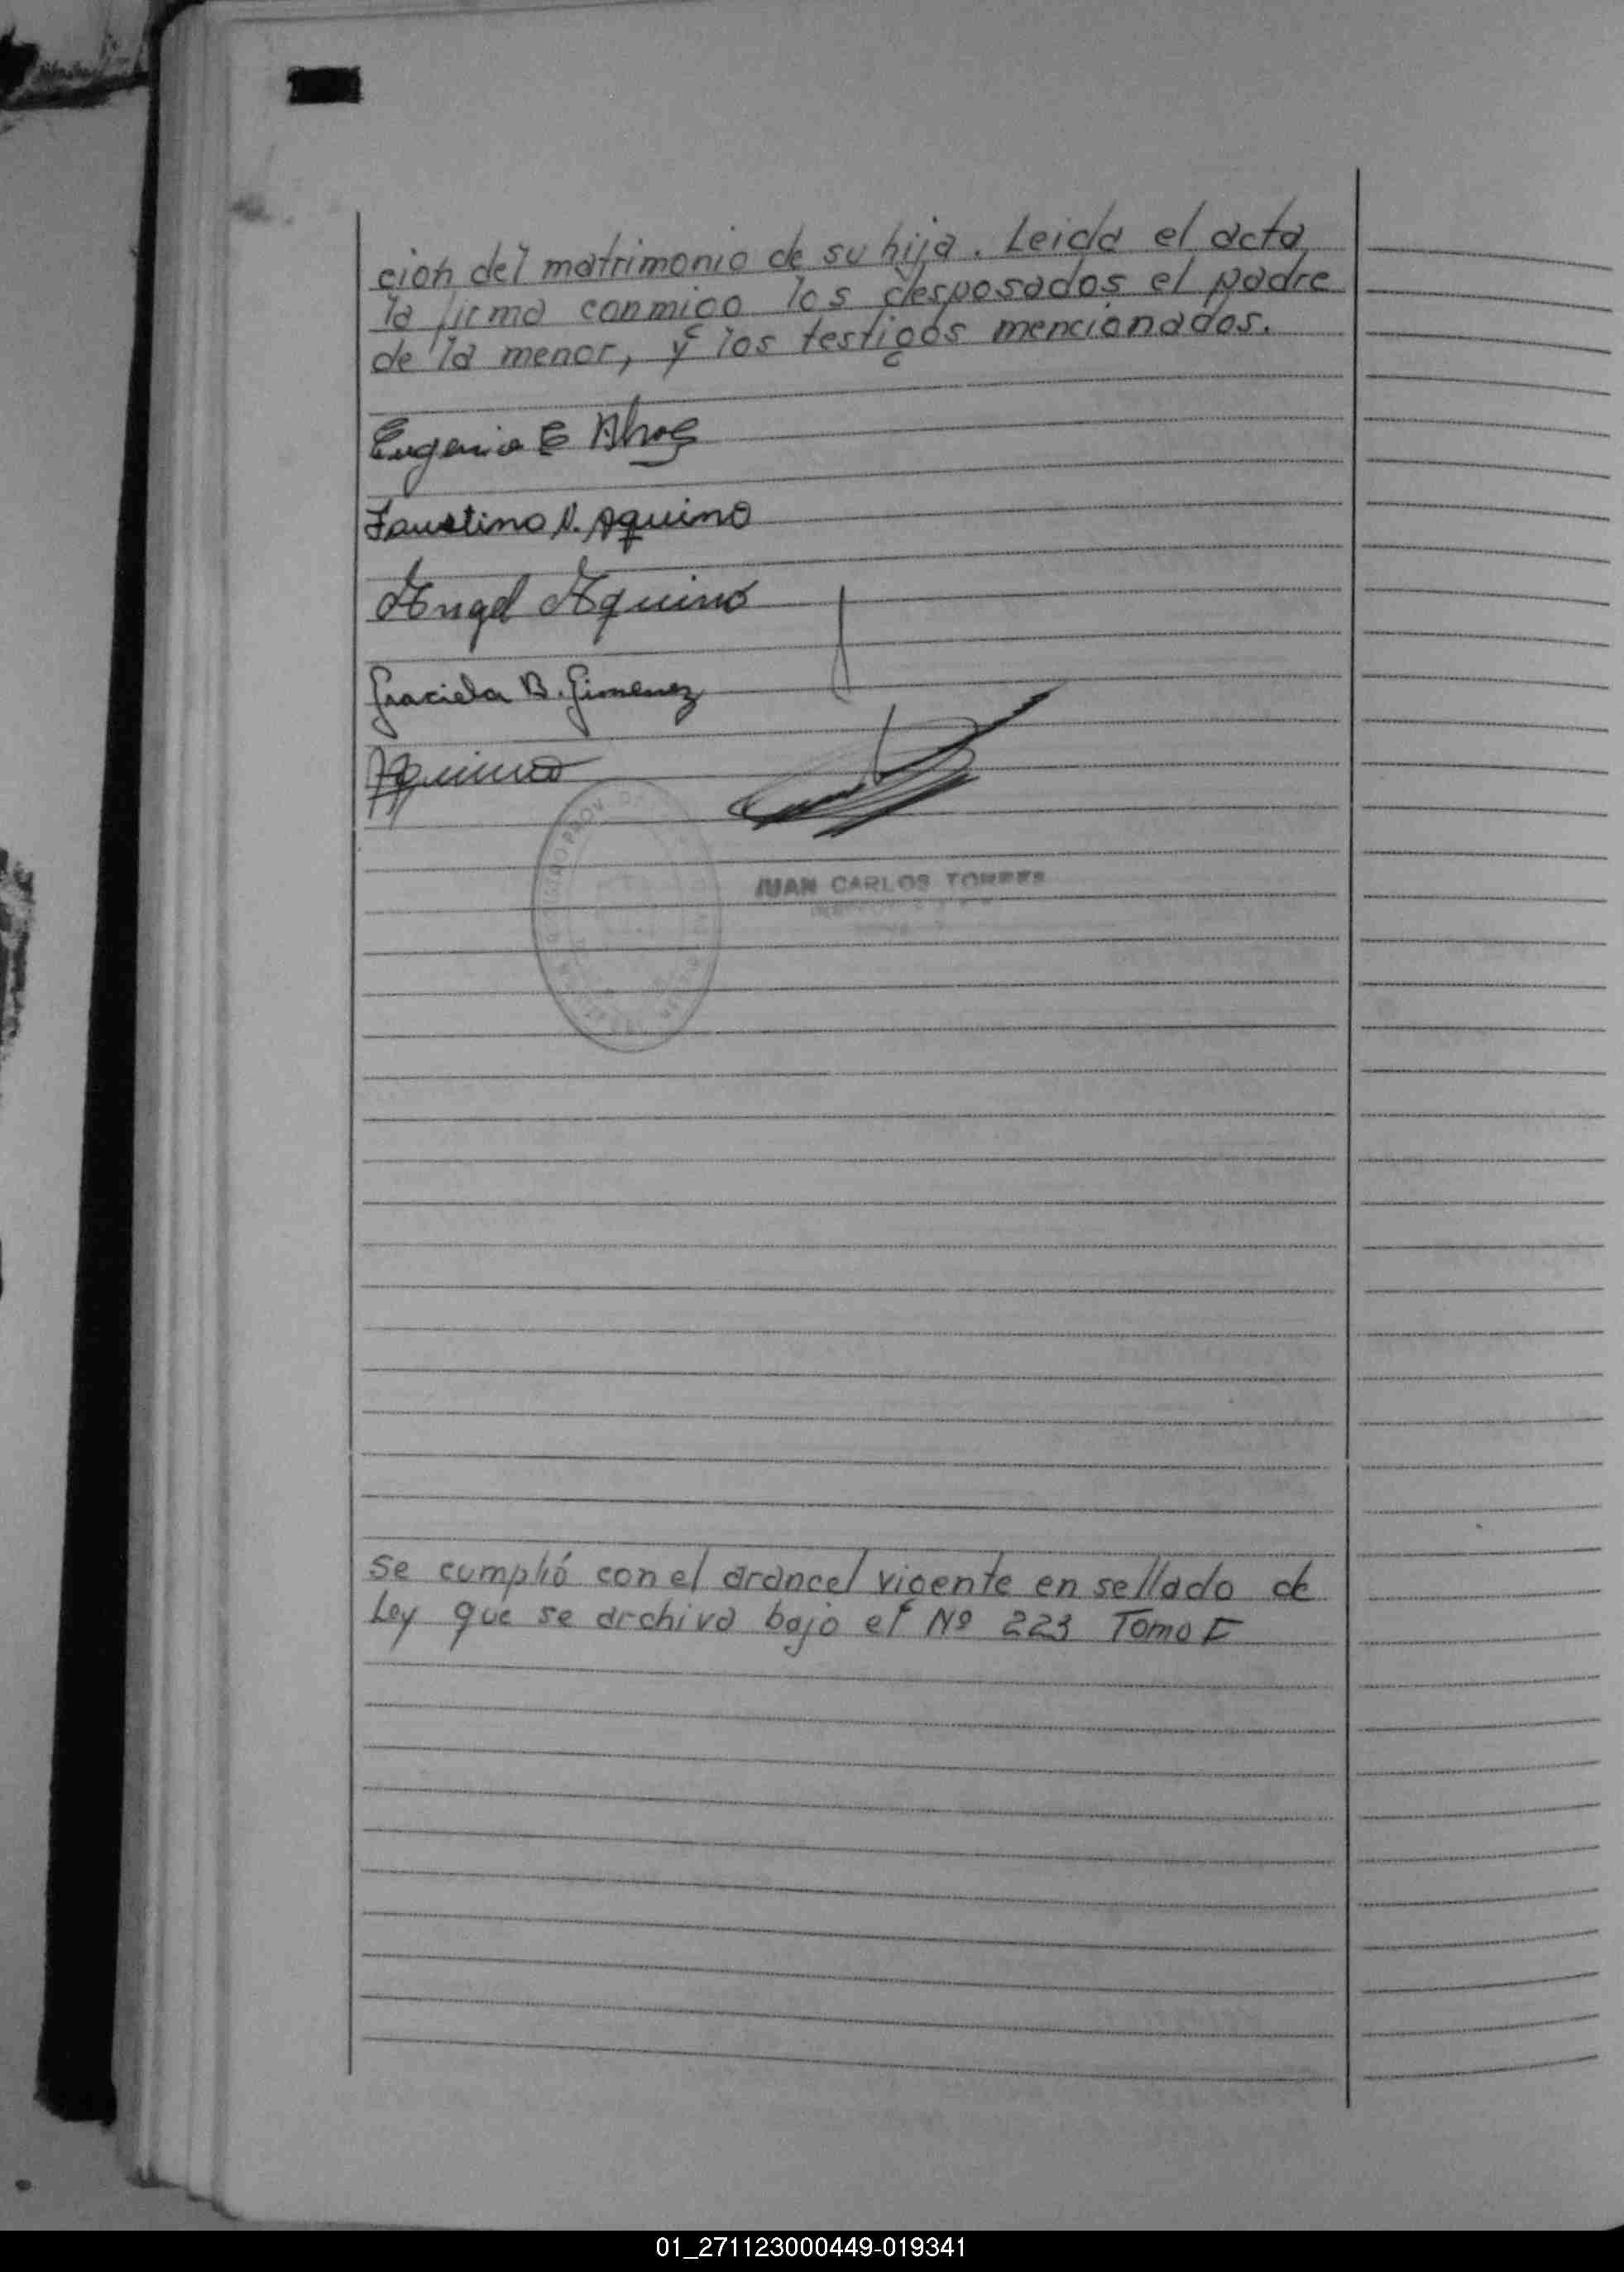 cion del matrimonio de su hija. Leida el acta
la firma conmigo los desposados el padre
de la menor, y los testigos mencionados.
Eugenio E
Faustino N. Aquino
Angel Aquino
Graciela B. Gimenez
Aquino
JUAN CARLOS TORRES
Se cumplió con el arancel vigente en sellado de
Ley que se archiva bajo el Nº 223 Tomo I
01_271123000449-019341